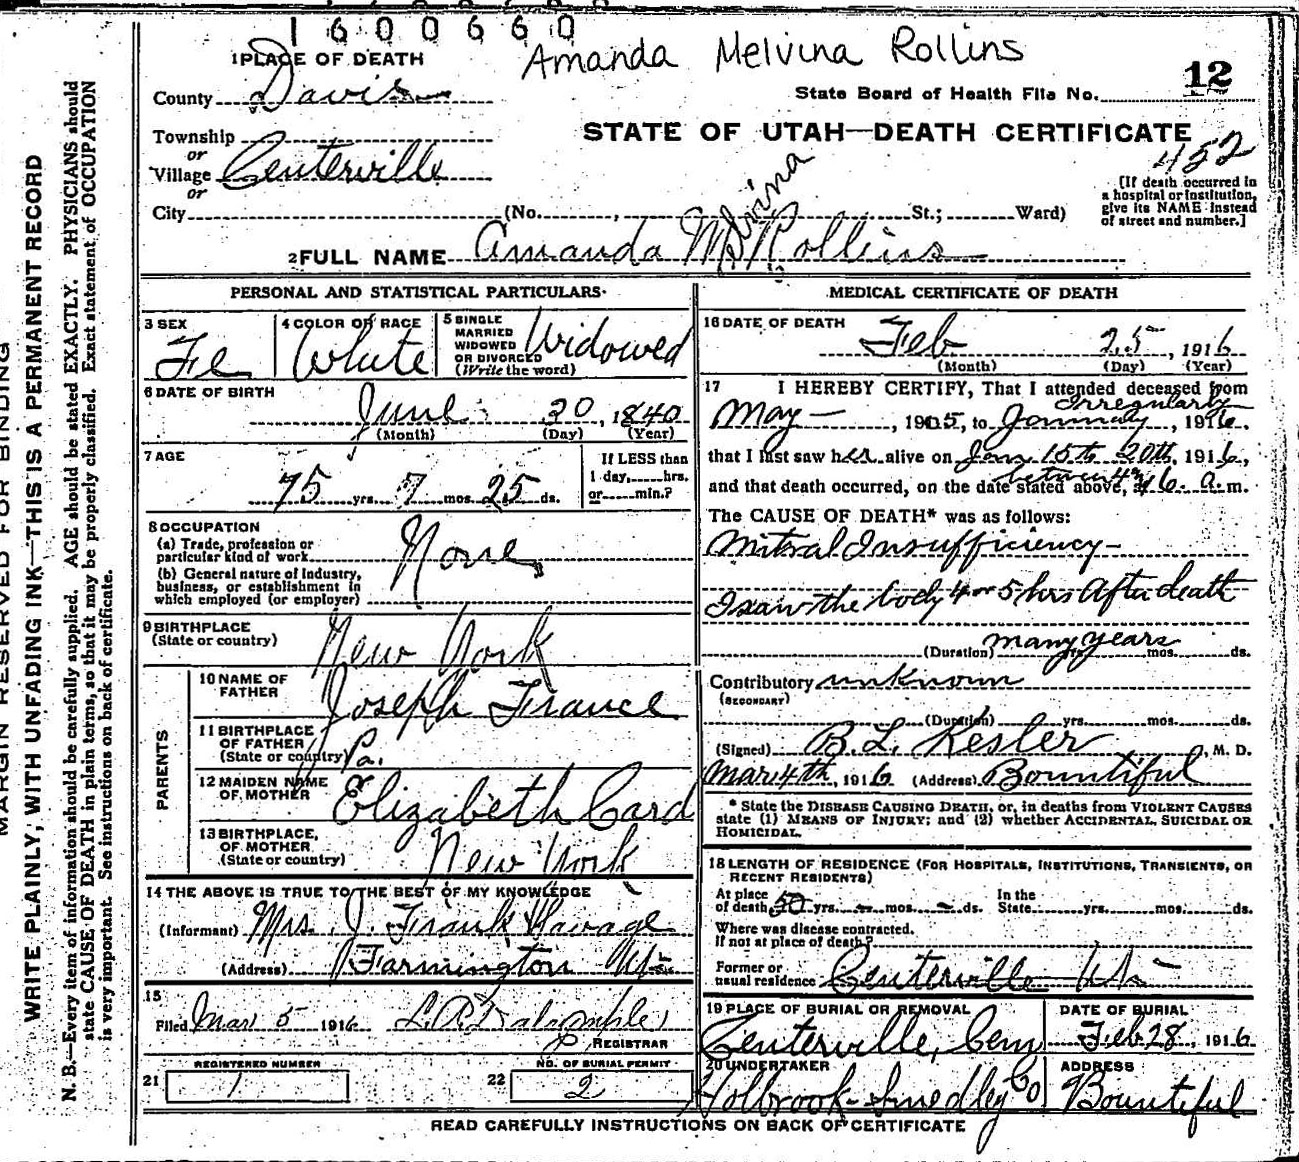 1600660
Amanda Melvina Rollins
1 PLACE OF DEATH
12
County Davis
State Board of Health File No.
STATE OF UTAH—DEATH CERTIFICATE
452
Township
or
Village Centerville
or
City (No. , St.; Ward)
[If death occurred in
a hospital or institution,
give its NAME instead
of street and number.]
Melvina
2 FULL NAME Amanda M. Rollins
PERSONAL AND STATISTICAL PARTICULARS
3 SEX
Fe
4 COLOR OR RACE
White
5 SINGLE
MARRIED
WIDOWED
OR DIVORCED
(Write the word)
Widowed
6 DATE OF BIRTH
June 30, 1840
(Month) (Day) (Year)
7 AGE
75 yrs. 7 mos. 25 ds.
If LESS than
1 day, hrs.
or min.?
8 OCCUPATION
(a) Trade, profession or
particular kind of work
None
(b) General nature of industry,
business, or establishment in
which employed (or employer)
9 BIRTHPLACE
(State or country)
New York
PARENTS
10 NAME OF
FATHER
Joseph France
11 BIRTHPLACE
OF FATHER
(State or country)
Pa.
12 MAIDEN NAME
OF MOTHER
Elizabeth Card
13 BIRTHPLACE,
OF MOTHER
(State or country)
New York
14 THE ABOVE IS TRUE TO THE BEST OF MY KNOWLEDGE
(Informant) Mrs. J. Frank
(Address) Farmington
15
Filed Mar 5 1916
REGISTRAR
REGISTERED NUMBER
21 1
NO. OF BURIAL PERMIT
22 2
MEDICAL CERTIFICATE OF DEATH
16 DATE OF DEATH
Feb 25, 1916
(Month) (Day) (Year)
17 I HEREBY CERTIFY, That I attended deceased from
Irregularly
May—, 1905, to January, 1916,
that I last saw her alive on Jan 15th 20th, 1916,
between 4
and that death occurred, on the date stated above, at 6. a. m.
The CAUSE OF DEATH* was as follows:
Mitral Insufficiency—
I saw the body 4 or 5 hrs After death
(Duration) many years mos. ds.
Contributory unknown
(SECONDARY)
(Duration) yrs. mos. ds.
(Signed) B. L. Kesler, M. D.
Mar 4th, 1916 (Address) Bountiful
* State the DISEASE CAUSING DEATH, or, in deaths from VIOLENT CAUSES
state (1) MEANS OF INJURY; and (2) whether ACCIDENTAL, SUICIDAL OR
HOMICIDAL.
18 LENGTH OF RESIDENCE (FOR HOSPITALS, INSTITUTIONS, TRANSIENTS, OR
RECENT RESIDENTS)
At place
of death 50 yrs. - mos. - ds.
In the
State yrs. mos. ds.
Where was disease contracted.
if not at place of death?
Former or
usual residence Centerville
19 PLACE OF BURIAL OR REMOVAL
Centerville, Cem
DATE OF BURIAL
Feb 28, 1916
20 UNDERTAKER
Holbrook-Smedley Co
ADDRESS
Bountiful
READ CAREFULLY INSTRUCTIONS ON BACK OF CERTIFICATE
MARGIN RESERVED FOR BINDING
WRITE PLAINLY, WITH UNFADING INK—THIS IS A PERMANENT RECORD
N. B.—Every item of information should be carefully supplied. AGE should be stated EXACTLY. PHYSICIANS should
state CAUSE OF DEATH in plain terms, so that it may be properly classified. Exact statement of OCCUPATION
is very important. See instructions on back of certificate.